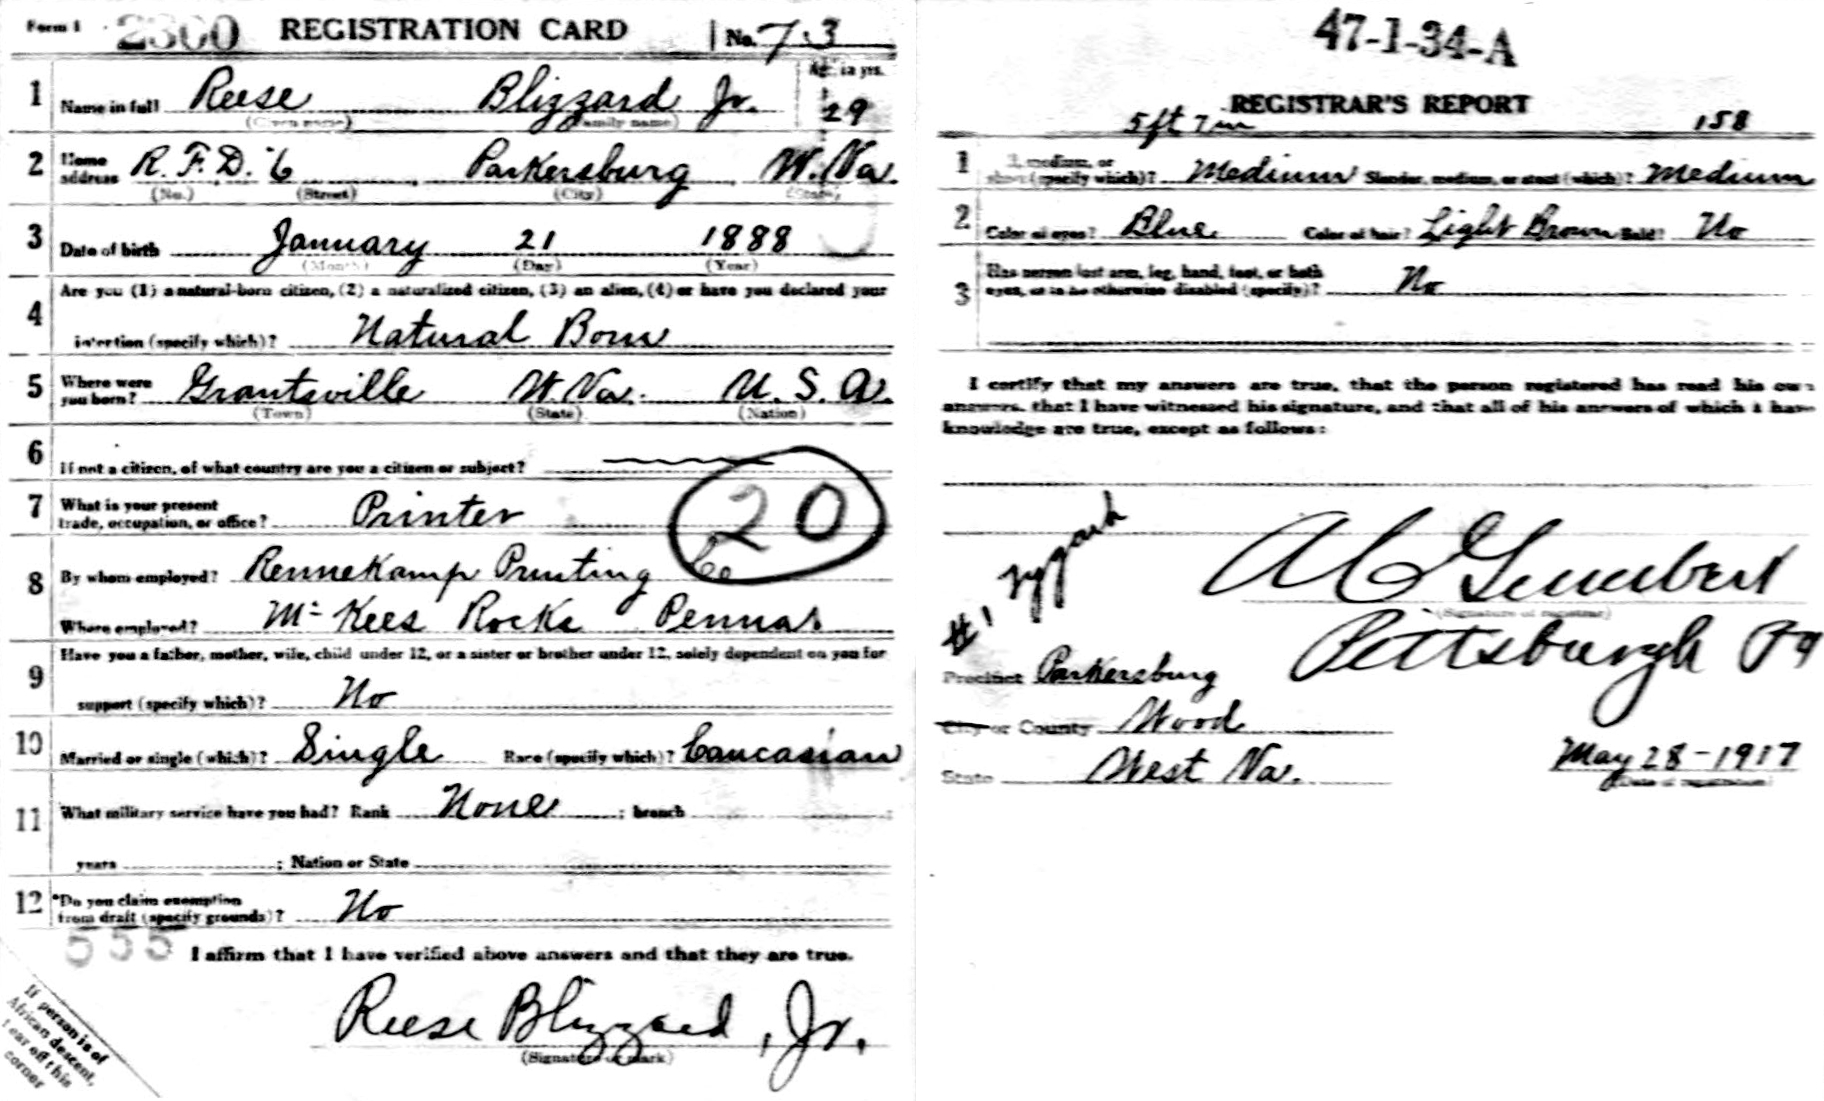 Form 1 2300 REGISTRATION CARD No. 73
1 Name in full Reese Blizzard Jr. Age, in yrs. 29
(Given name) (Family name)
2 Home address R.F.D. 6 Parkersburg W. Va.
(No.) (Street) (City) (State)
3 Date of birth January 21 1888
(Month) (Day) (Year)
4 Are you (1) a natural-born citizen, (2) a naturalized citizen, (3) an alien, (4) or have you declared your
intention (specify which)? Natural Born
5 Where were you born? Grantsville W. Va. U. S. A.
(Town) (State) (Nation)
6 If not a citizen, of what country are you a citizen or subject?
7 What is your present trade, occupation, or office? Printer
20
8 By whom employed? Rennekamp Printing Co
Where employed? Mc Kees Rocks Penna.
9 Have you a father, mother, wife, child under 12, or a sister or brother under 12, solely dependent on you for
support (specify which)? No
10 Married or single (which)? Single Race (specify which)? Caucasian
11 What military service have you had? Rank None ; branch
years ; Nation or State
12 *Do you claim exemption from draft (specify grounds)? No
555 I affirm that I have verified above answers and that they are true.
Reese Blizzard, Jr.
(Signature or mark)
If person is of
African descent,
tear off this
corner
47-1-34-A
REGISTRAR'S REPORT
5ft 7in 158
1 medium, or (specify which)? Medium Slender, medium, or stout (which)? Medium
2 Color of eyes? Blue Color of hair? Light Brown Bald? No
3 Has person lost arm, leg, hand, foot, or both
eyes, or is he otherwise disabled (specify)? No
I certify that my answers are true, that the person registered has read his own
answers, that I have witnessed his signature, and that all of his answers of which I have
knowledge are true, except as follows:
#1
(Signature of registrar)
Pittsburgh Pa
Precinct Parkersburg
City or County Wood
State West Va.
May 28-1917
(Date of registration)